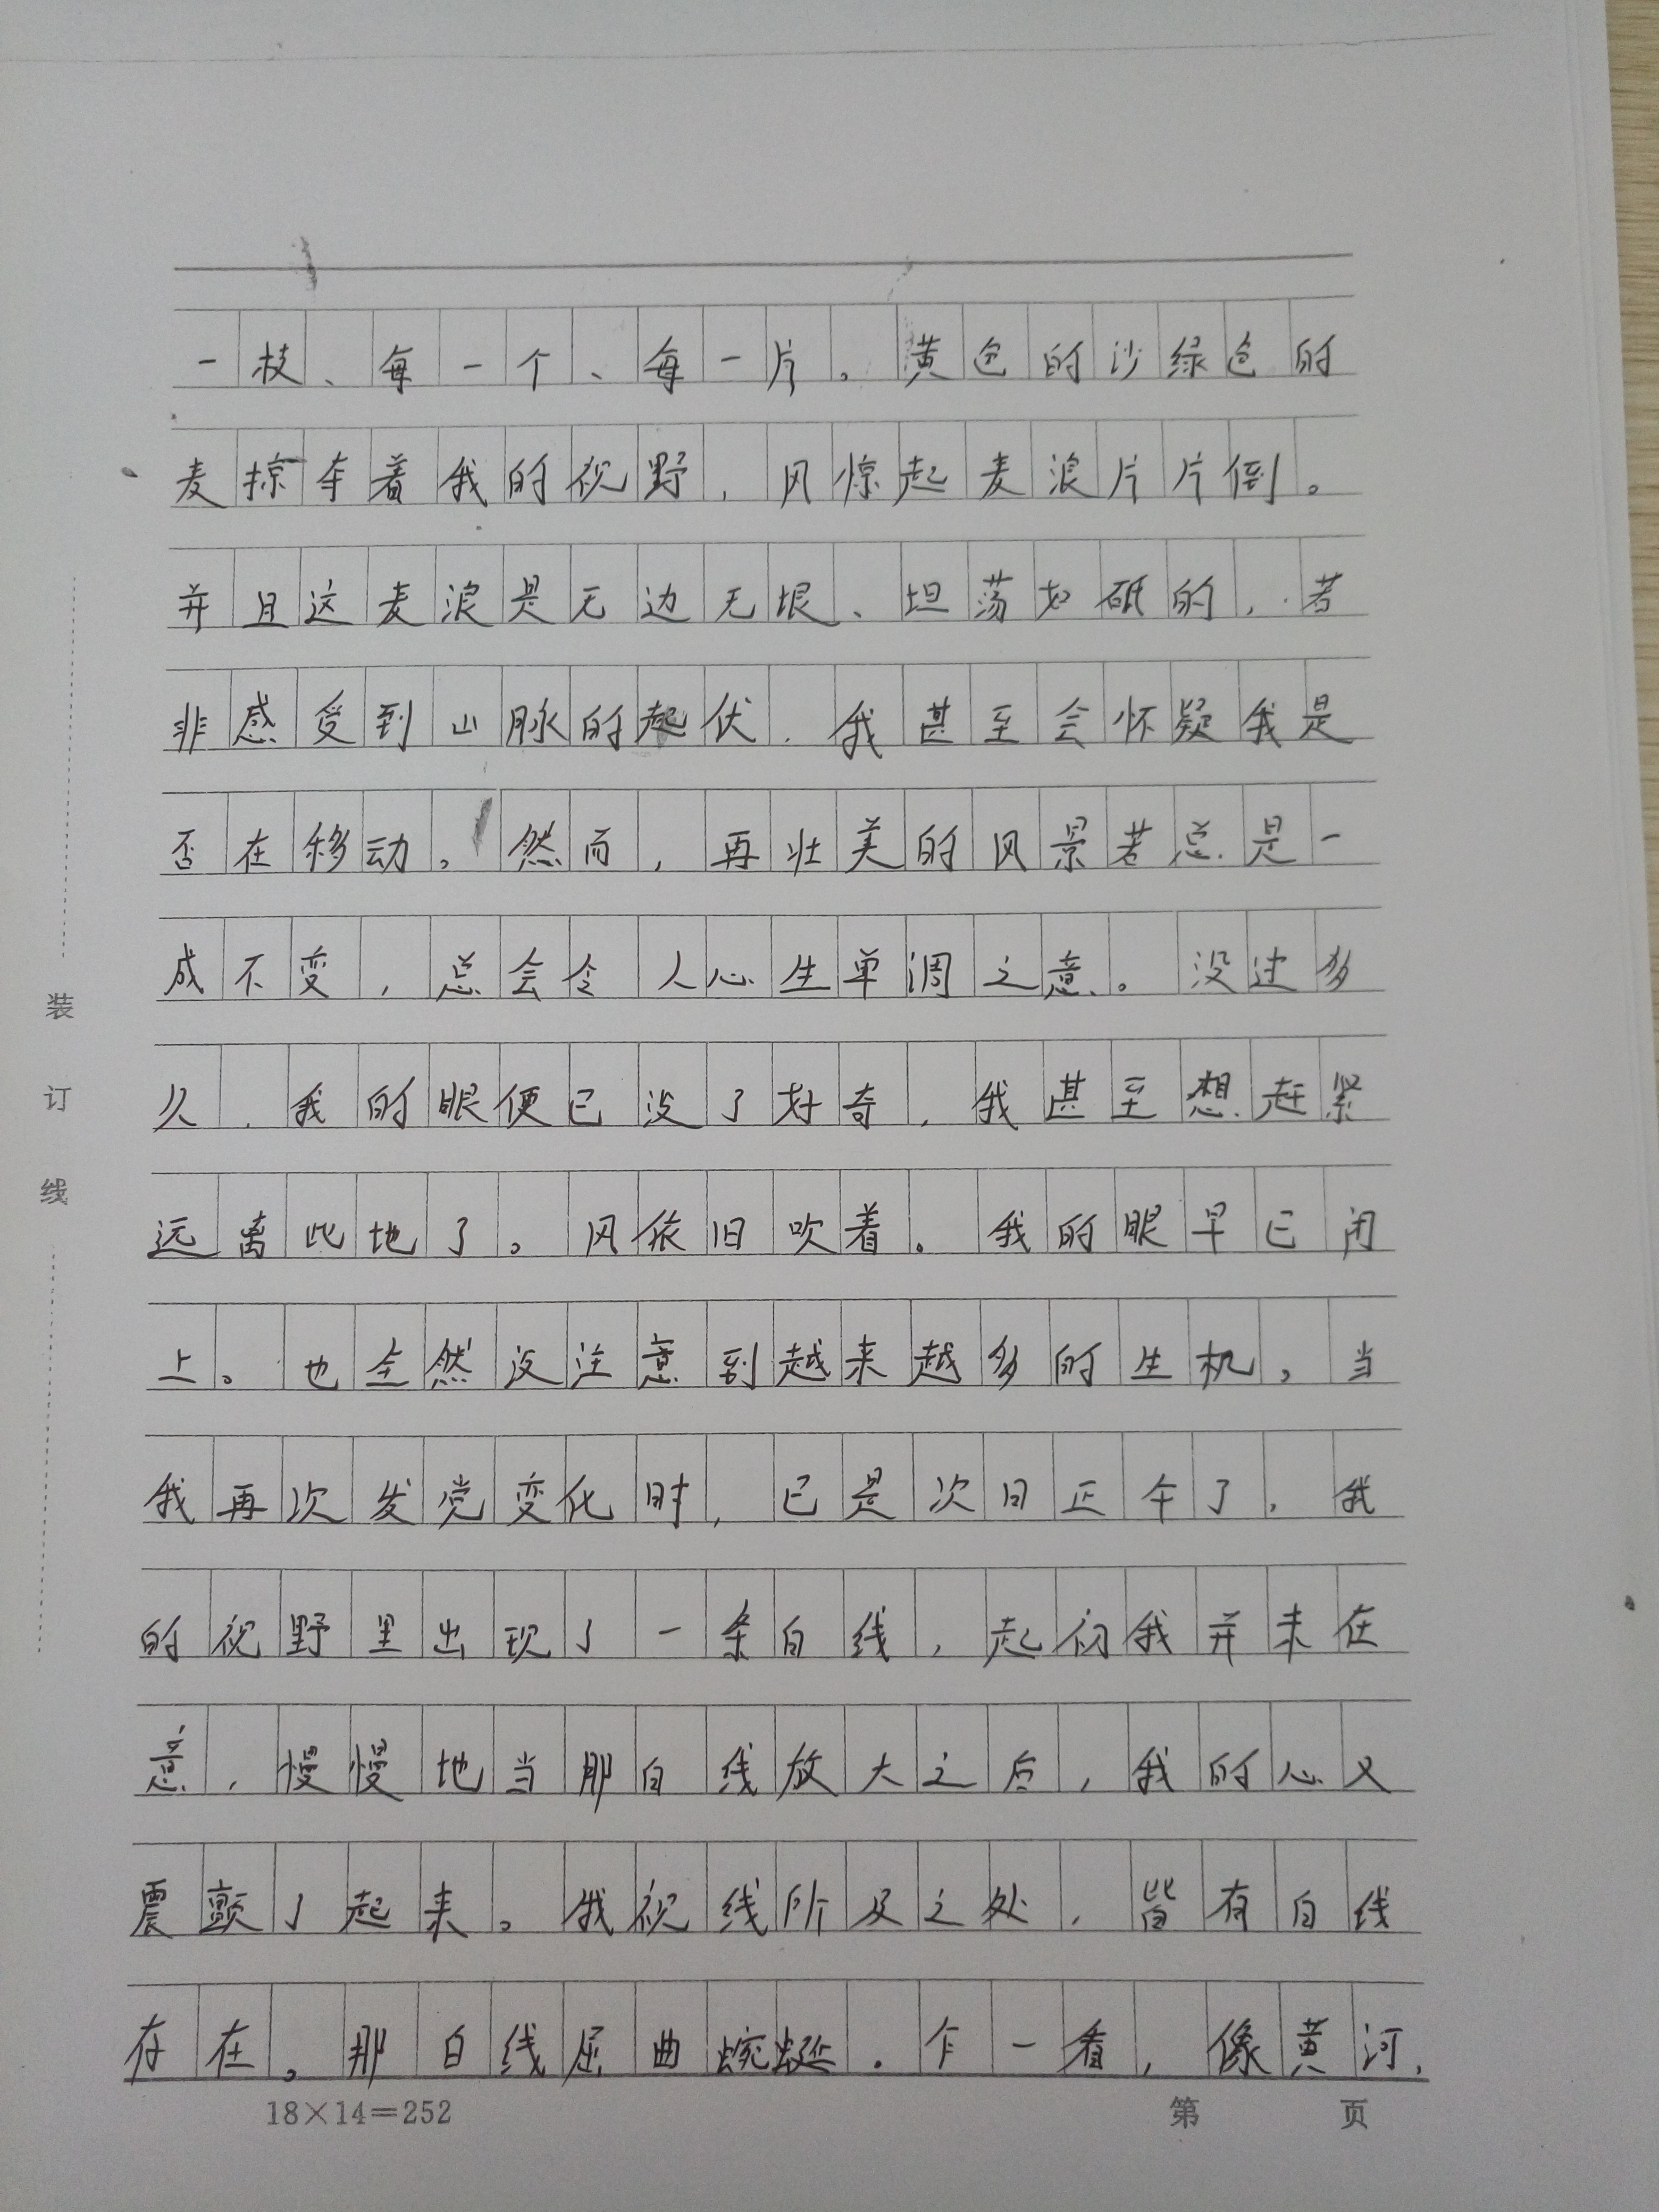 一枝、每一个、每一片。黄色的沙绿色的
麦掠夺着我的视野，风惊起麦浪片片倒。
并且这麦浪是无边无垠、坦荡如砥的，若
非感受到山脉的起伏，我甚至会怀疑我是
否在移动。然而，再壮美的风景若总是一
成不变，总会令人心生单调之意。没过多
久，我的眼便已没了好奇，我甚至想赶紧
远离此地了。风依旧吹着。我的眼早已闭
上。也全然没注意到越来越多的生机。当
我再次发觉变化时，已是次日正午了，我
的视野里出现了一条白线，起初我并未在
意，慢慢地当那白线放大之后，我的心又
震颤了起来。我视线所及之处，皆有白线
存在。那白线屈曲蜿蜒．乍一看，像黄河，
装
订
线
18×14=252
第 页